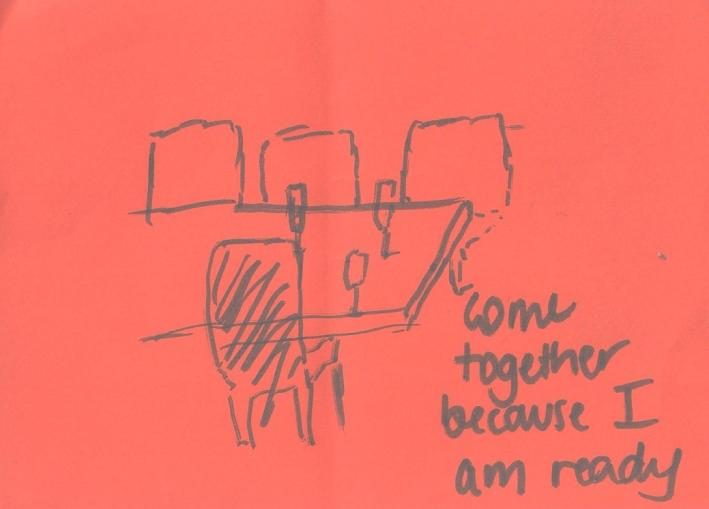 come
together
because I
am ready